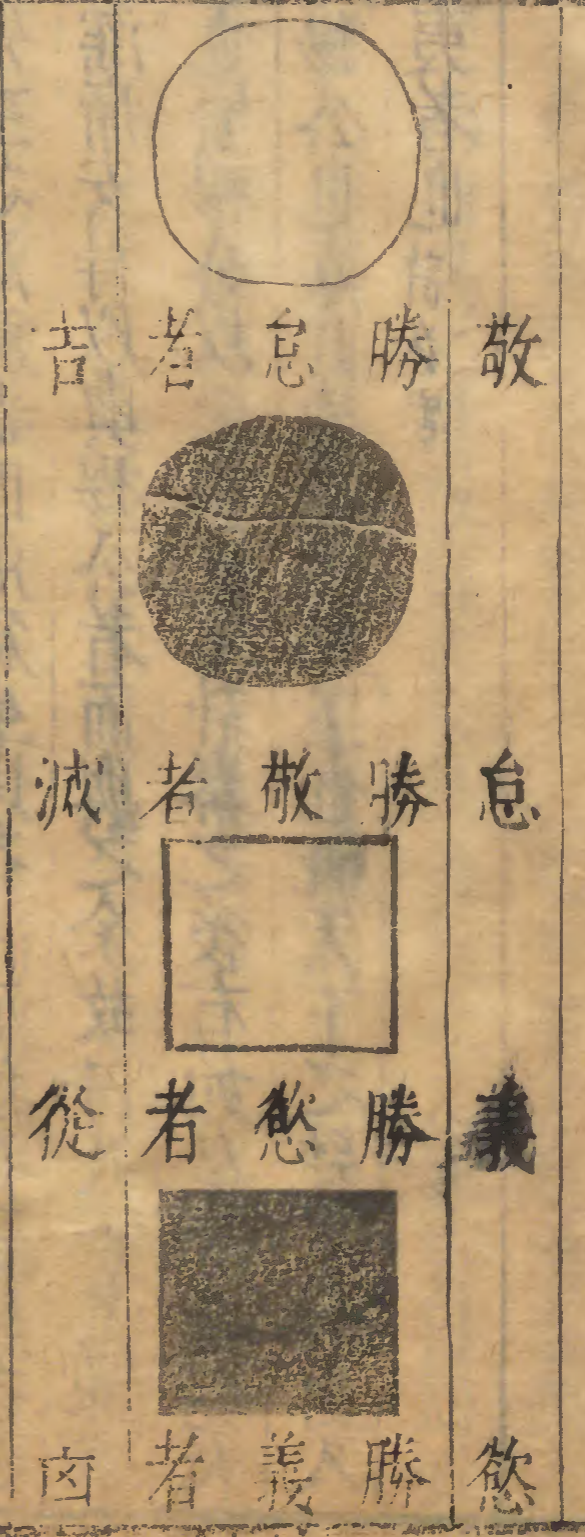 敬勝怠者吉
怠勝敬者滅
義勝慾者從
慾勝義者凶